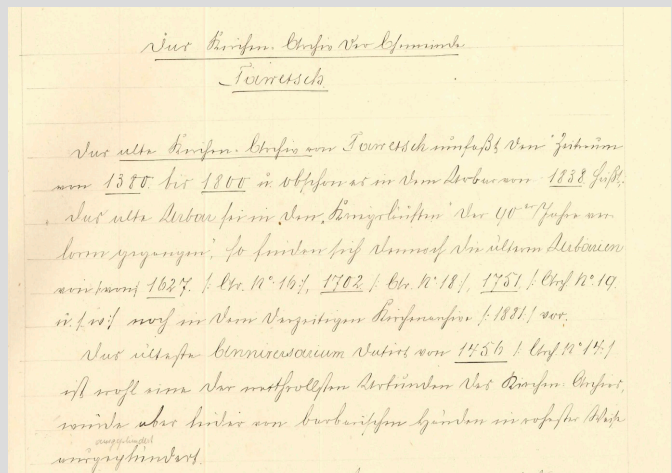 Das Kirchen-Archiv der Gemeinde
Tawetsch.
Das alte Kirchen-Archiv von Tawetsch umfaßt den Zeitraum
von 1380 bis 1800 u. obschon es in dem Urbar von 1838 heißt:
das alte Urbar sei in den „Kriegsläuften" der 90er Jahre ver-
loren gegangen", so finden sich dennoch die ältern Urbarien
von 1627 /: Ctr. No 16:/, 1702 /: Ctr. No 18:/, 1751 /: Arch No. 19.
u. s. w:/ noch in dem derzeitigen Kirchenarchive /: 1881:/ vor.
Das älteste Anniversarium datirt von 1456 /: Arch. No 14:/
ist wohl eine der werthvollsten Urkunden des Kirchen-Archivs,
wurde aber leider von barbarischen Händen in rohester Weise
ausgeplündert
ausgeplündert.